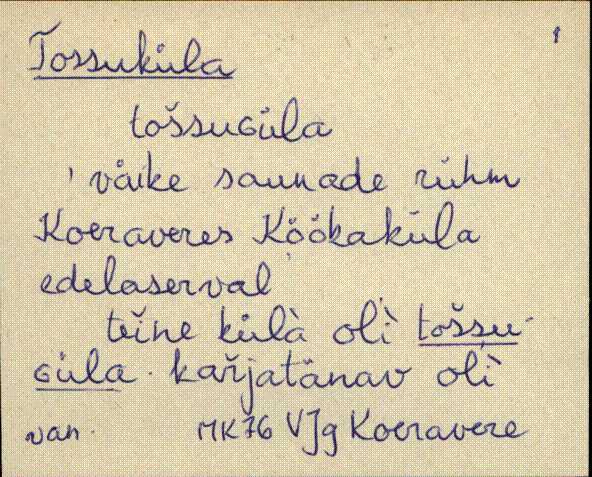 Tossuküla
tošsuGüla
'väike saunade rühm
Koeraveres Köökaküla
edelaserval'
teine külà olì tošsu-
Güla. kařjatänav olì
van. MK76 VJg Koeravere